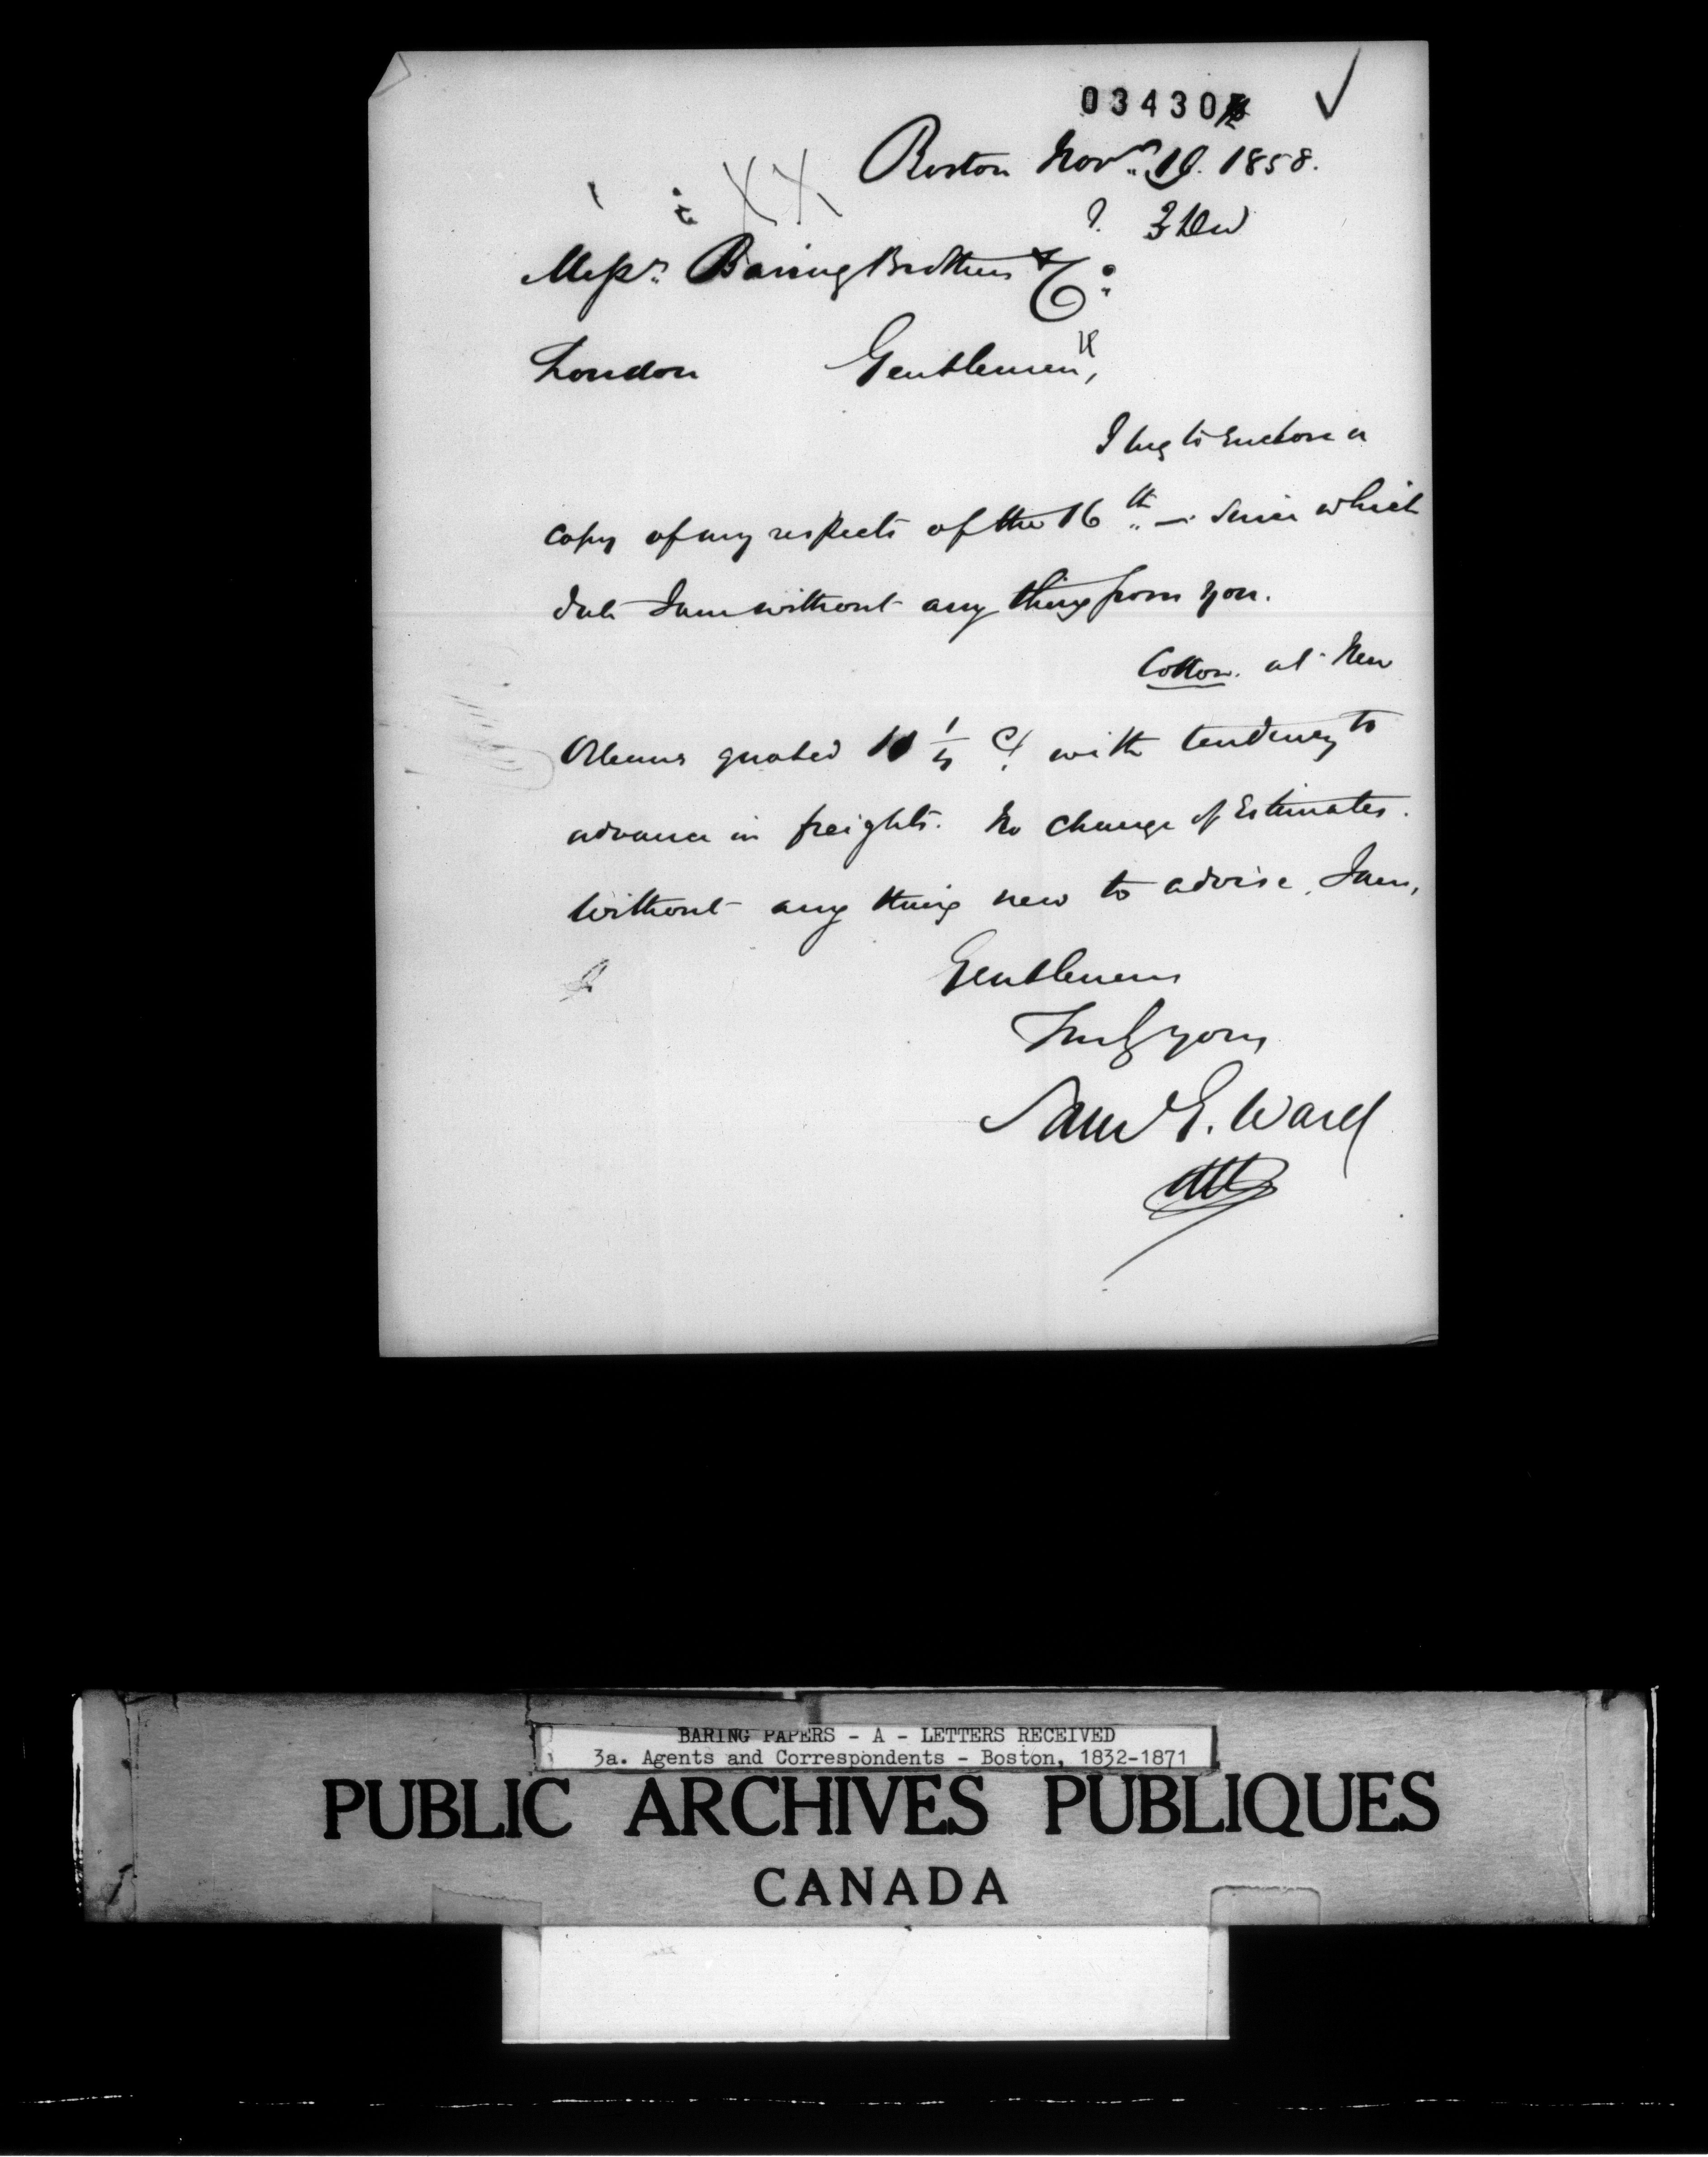 03430
Boston Nov.r 19. 1858.
? 3 Dec
Messrs. Baring Brothers & Co.
London Gentlemen,
I beg to enclose a
copy of my respects of the 16th — since which
date I am without any thing from you.
Cotton. at New
Orleans quoted with tendency to
advance in freights. No change of Estimates.
Without any thing new to advise, I am,
Gentlemen
Truly yours
Saml G. Ward
BARING PAPERS - A - LETTERS RECEIVED
3a. Agents and Correspondents - Boston, 1832-1871
PUBLIC ARCHIVES PUBLIQUES
CANADA